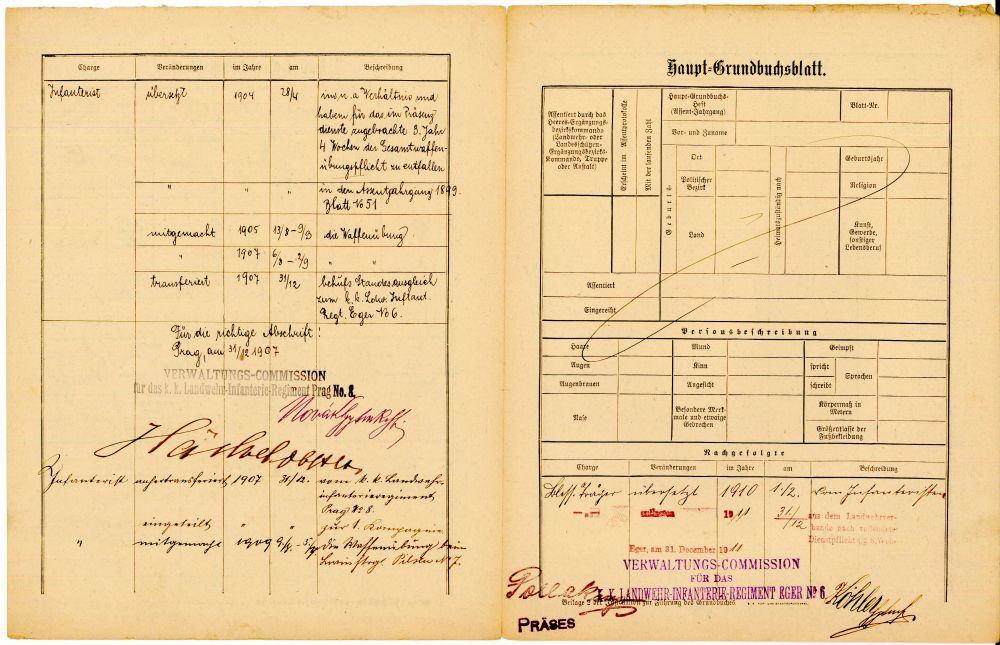 Charge Veränderungen im Jahre am Beschreibung
Infanterist übersetzt 1904 28/4 ins n. a Verhältnis und
haben für das im Präsenz
dienste zugebrachte 3. Jahr
4 Wochen der Gesamtwaffen-
übungspflicht zu entfallen
" " " in den Assentjahrgang 1899.
Blatt No 51
mitgemacht 1905 13/8 - 9/9 die Waffenübung.
" 1907 6/8 - 2/9 " "
transferiert 1907 31/12 behufs Standesausgleich
zum k. k. Ldw. Inftant.
Regt. Eger No 6.
Für die richtige Abschrift!
Prag, am 31/12 1907
VERWALTUNGS-COMMISSION
für das k. k. Landwehr-Infanterie-Regiment Prag No. 8.
Infanterist anhertransferiert 1907 31/12. vom k. k. Landwehr-
infanterieregiment
Prag No 8.
eingeteilt " " zur 1. Kompagnie
" mitgemacht 1909 die Waffenübung beim
Pilsen No 7.
Haupt-Grundbuchsblatt.
Assentiert durch das
Heeres-Ergänzungs-
bezirkskommando
(Landwehr- oder
Landesschützen-
Ergänzungsbezirks-
Kommando, Truppe
oder Anstalt)
Erscheint im Assentprotokolle
Mit der laufenden Zahl
Haupt-Grundbuchs-
Heft
(Assent-Jahrgang)
Blatt-Nr.
Vor- und Zuname
Geburts-
Ort
Politischer
Bezirk
Land
Heimatszuständig nach
Geburtsjahr
Religion
Kunst,
Gewerbe,
sonstiger
Lebensberuf
Assentiert
Eingereiht
Personsbeschreibung
Haare Mund Geimpft
Augen Kinn spricht Sprachen
Augenbrauen Angesicht schreibt
Nase
Besondere Merk-
male und etwaige
Gebrechen
Körpermaß in
Metern
Größenklasse der
Fußbekleidung
Nachgefolgte
Charge Veränderungen im Jahre am Beschreibung
Bless. Träger übersetzt 1910 1/2. vom Infanteristen
1911 31/12 aus dem Landwehrver-
bande nach vollendeter
Dienstpflicht
Eger, am 31. Dezember 1911
VERWALTUNGS-COMMISSION
FÜR DAS
K. K. LANDWEHR-INFANTERIE-REGIMENT EGER No 6.
Pollak
Köhler
Beilage 2 der Instruktion zur Führung des Grundbuches.
PRÄSES